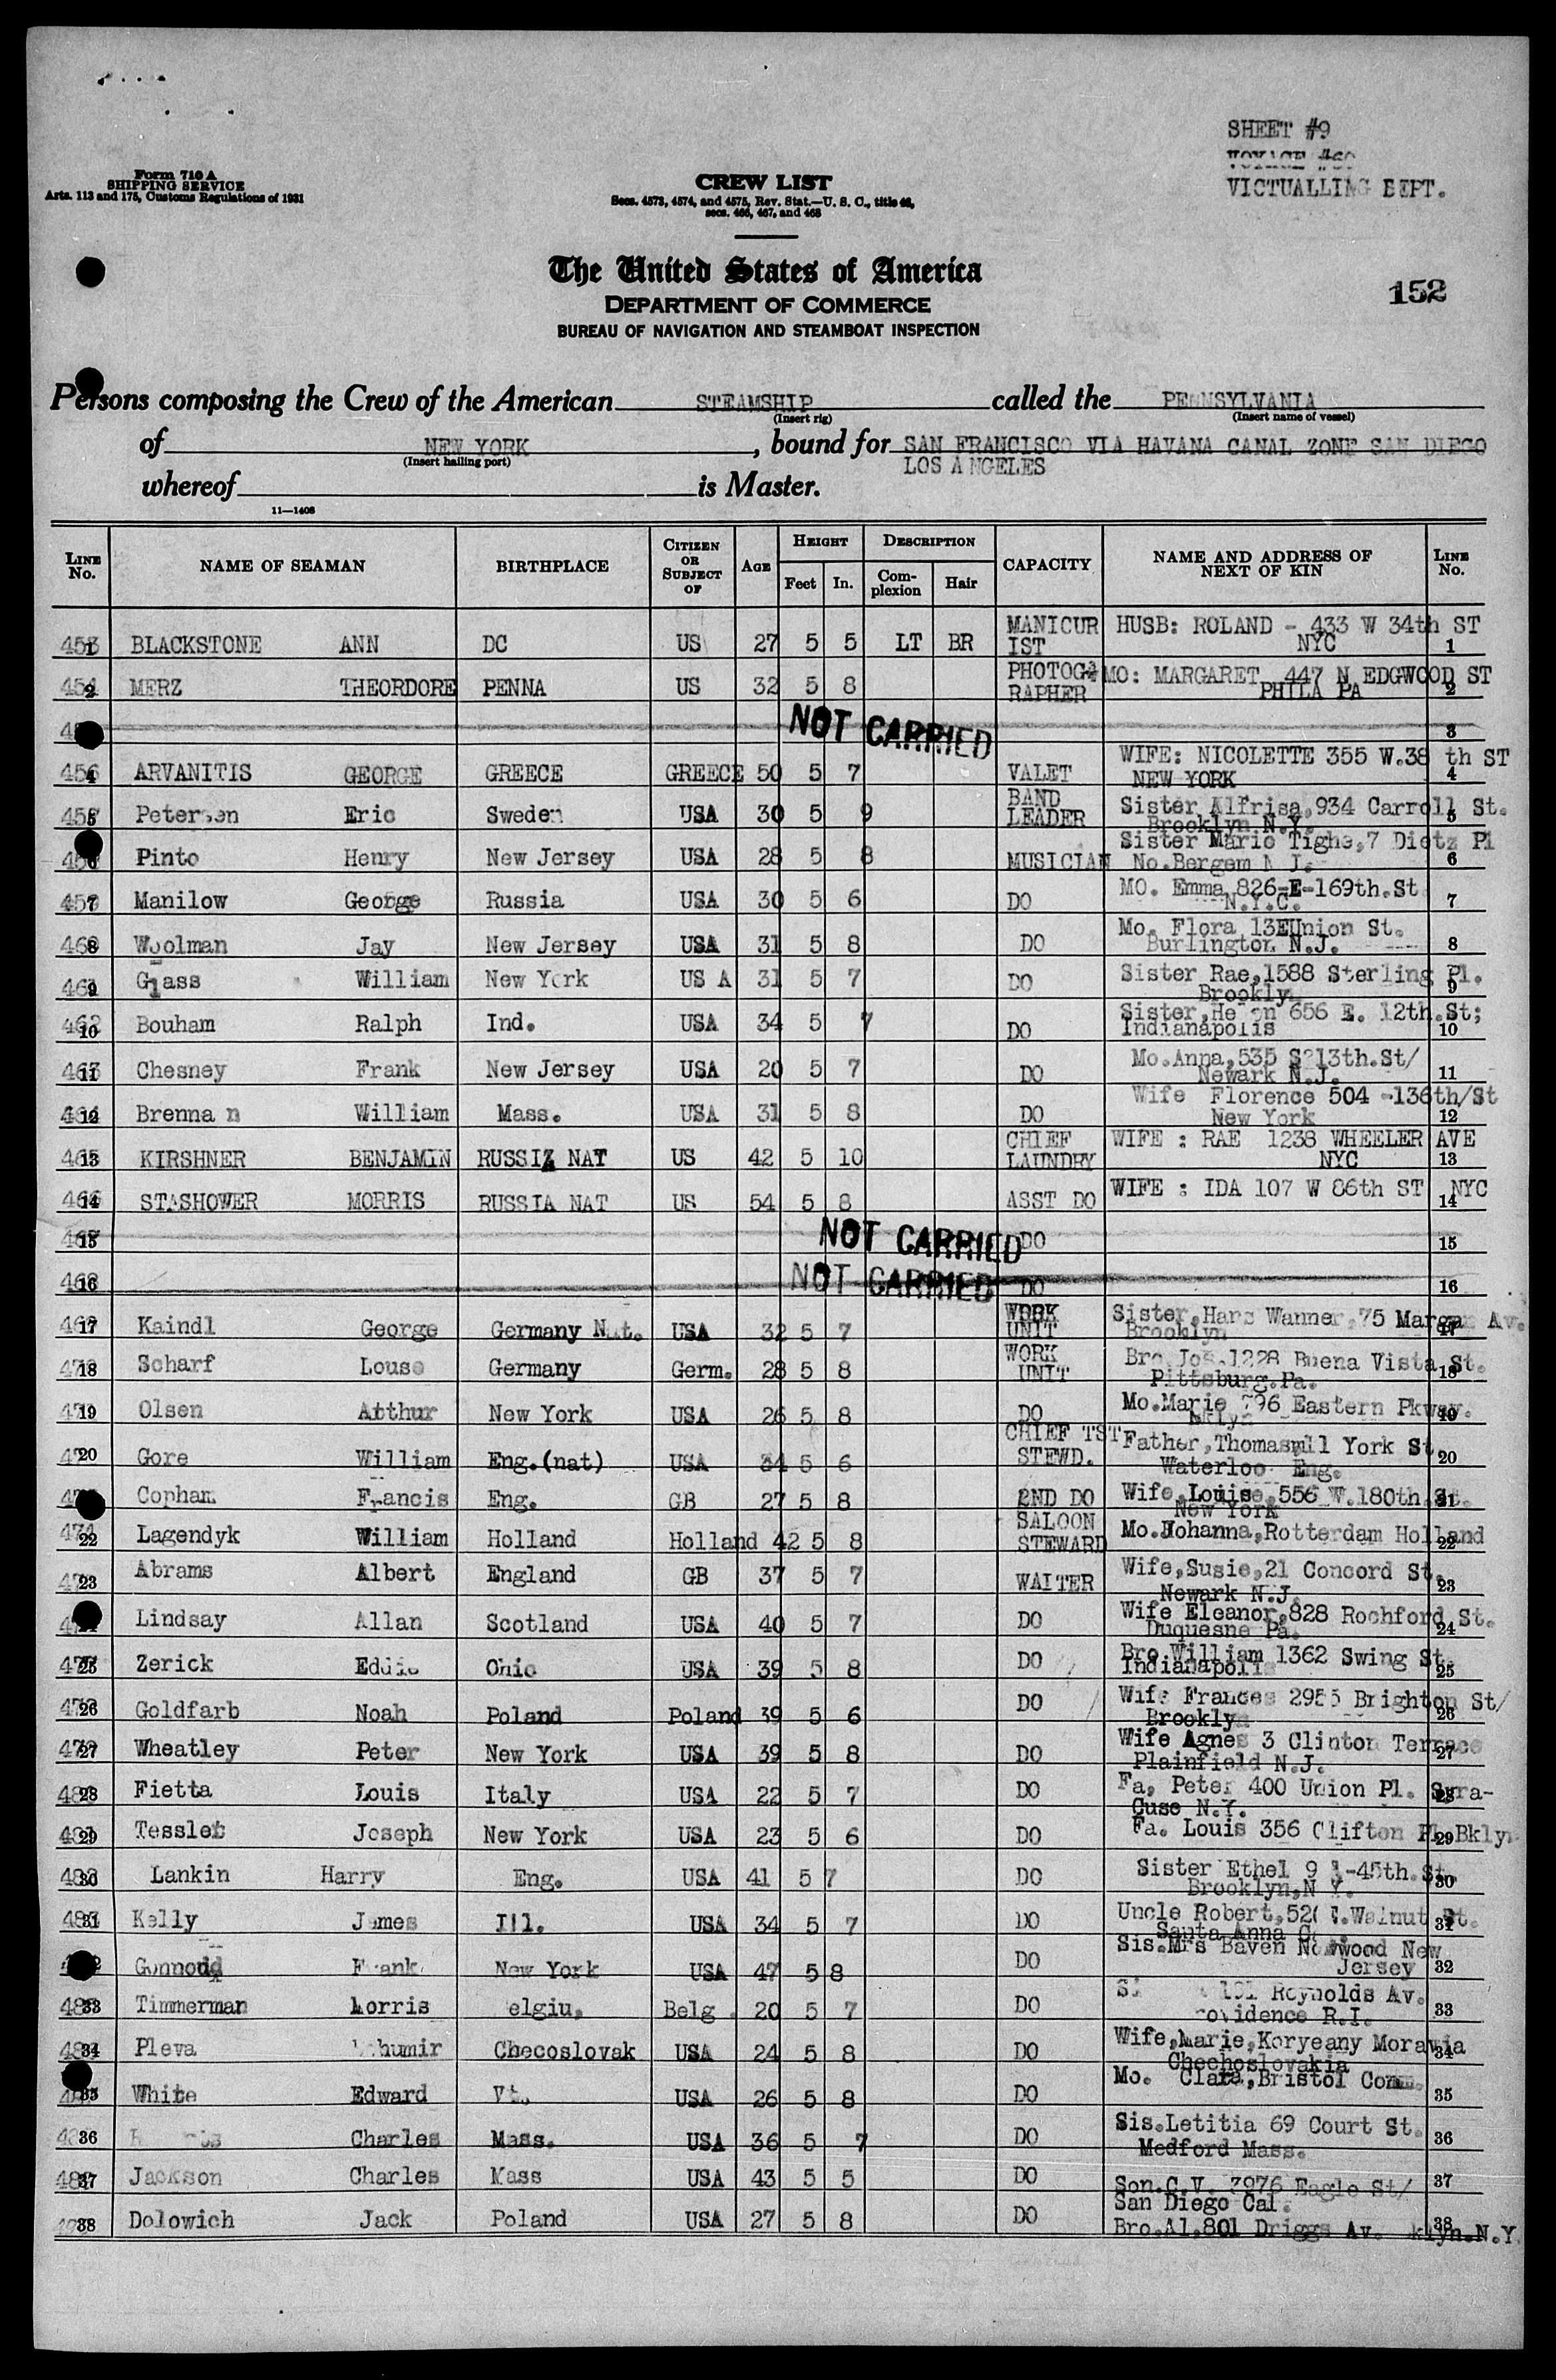 SHEET #9
VOYAGE #60
VICTUALLING DEPT.
Form 710 A
SHIPPING SERVICE
Arts. 113 and 175, Customs Regulations of 1931
CREW LIST
Secs. 4573, 4574, and 4575, Rev. Stat.—U. S. C., title 46,
secs. 466, 467, and 468
The United States of America
DEPARTMENT OF COMMERCE
BUREAU OF NAVIGATION AND STEAMBOAT INSPECTION
152
Persons composing the Crew of the American STEAMSHIP called the PENNSYLVANIA
(Insert rig) (Insert name of vessel)
of NEW YORK, bound for SAN FRANCISCO VIA HAVANA CANAL ZONE SAN DIEGO
(Insert hailing port) LOS ANGELES
whereof is Master.
11—1408
LINE No. NAME OF SEAMAN BIRTHPLACE CITIZEN OR SUBJECT OF AGE HEIGHT Feet In. DESCRIPTION Complexion Hair CAPACITY NAME AND ADDRESS OF NEXT OF KIN LINE No.
453 1 BLACKSTONE ANN DC US 27 5 5 LT BR MANICUR IST HUSB: ROLAND - 433 W 34th ST NYC 1
454 2 MERZ THEORDORE PENNA US 32 5 8 PHOTOG RAPHER MO: MARGARET 447 N EDGWOOD ST PHILA PA 2
NOT CARRIED 3
456 4 ARVANITIS GEORGE GREECE GREECE 50 5 7 VALET WIFE: NICOLETTE 355 W.38 th ST NEW YORK 4
457 5 Petersen Eric Sweden USA 30 5 9 BAND LEADER Sister Alfrisa,934 Carroll St. Brooklyn N.Y. 5
Pinto Henry New Jersey USA 28 5 8 MUSICIAN Sister Marie Tighe,7 Dietz Pl No.Bergem N J. 6
459 7 Manilow George Russia USA 30 5 6 DO MO. Emma 826-E-169th.St N.Y.C. 7
460 8 Woolman Jay New Jersey USA 31 5 8 DO Mo. Flora 13EUnion St. Burlington N.J. 8
461 9 Glass William New York US A 31 5 7 DO Sister Rae,1588 Sterling Pl. Brooklyn 9
462 10 Bouham Ralph Ind. USA 34 5 7 DO Sister,Helen 656 E. 12th.St; Indianapolis 10
463 11 Chesney Frank New Jersey USA 20 5 7 DO Mo.Anna,535 S 13th.St/ Newark N.J. 11
464 12 Brenna n William Mass. USA 31 5 8 DO Wife Florence 504 -136th/St New York 12
465 13 KIRSHNER BENJAMIN RUSSIA NAT US 42 5 10 CHIEF LAUNDRY WIFE : RAE 1238 WHEELER AVE NYC 13
466 14 STASHOWER MORRIS RUSSIA NAT US 54 5 8 ASST DO WIFE : IDA 107 W 86th ST NYC 14
467 15 NOT CARRIED DO 15
468 16 NOT CARRIED DO 16
469 17 Kaindl George Germany Nat. USA 32 5 7 WORK UNIT Sister,Hans Wanner,75 Margan Av. Brooklyn 17
470 18 Scharf Louse Germany Germ. 28 5 8 WORK UNIT Bro Jos.1228 Buena Vista St. Pittsburg.Pa. 18
471 19 Olsen Atthur New York USA 26 5 8 DO Mo.Marie 796 Eastern Pkway. Bklyn 19
20 Gore William Eng.(nat) USA 34 5 6 CHIEF TST STEWD. Father,Thomas York St. Waterloo Eng. 20
Copham Francis Eng. GB 27 5 8 2ND DO Wife,Louise,556 W.180th.St. New York 21
474 22 Lagendyk William Holland Holland 42 5 8 SALOON STEWARD Mo.Johanna,Rotterdam Holland 22
23 Abrams Albert England GB 37 5 7 WAITER Wife,Susie,21 Concord St. Newark N.J. 23
Lindsay Allan Scotland USA 40 5 7 DO Wife Eleanor,828 Rochford St. Duquesne Pa. 24
477 25 Zerick Eddie Ohio USA 39 5 8 DO Bro William 1362 Swing St. Indianapolis 25
478 26 Goldfarb Noah Poland Poland 39 5 6 DO Wife Frances 2955 Brighton St/ Brooklyn 26
479 27 Wheatley Peter New York USA 39 5 8 DO Wife Agnes 3 Clinton Terrace Plainfield N.J. 27
480 28 Fietta Louis Italy USA 22 5 7 DO Fa, Peter 400 Union Pl. Syra- Cuse N.Y. 28
481 29 Tessler Joseph New York USA 23 5 6 DO Fa. Louis 356 Clifton Pl Bklyn 29
482 30 Lankin Harry Eng. USA 41 5 7 DO Sister Ethel -45th.St. Brooklyn,N Y. 30
483 31 Kelly James Ill. USA 34 5 7 DO Uncle Robert, .Walnut St. Santa Anna 31
Frank New York USA 47 5 8 DO Sis.Mrs Baven Norwood New Jersey 32
485 33 Timmerman Morris Belgium Belg. 20 5 7 DO Reynolds Av. Providence R.I. 33
486 34 Pleva Checoslovak USA 24 5 8 DO Wife,Marie,Koryeany Moravia Chechoslovakia 34
35 White Edward Vt. USA 26 5 8 DO Mo. Clara,Bristol Conn. 35
36 Charles Mass. USA 36 5 7 DO Sis.Letitia 69 Court St. Medford Mass. 36
489 37 Jackson Charles Mass USA 43 5 5 DO Son.C.V. 3976 Eagle St/ San Diego Cal. 37
38 Dolowich Jack Poland USA 27 5 8 DO Bro.Al,801 Driggs Av. klyn.N.Y. 38